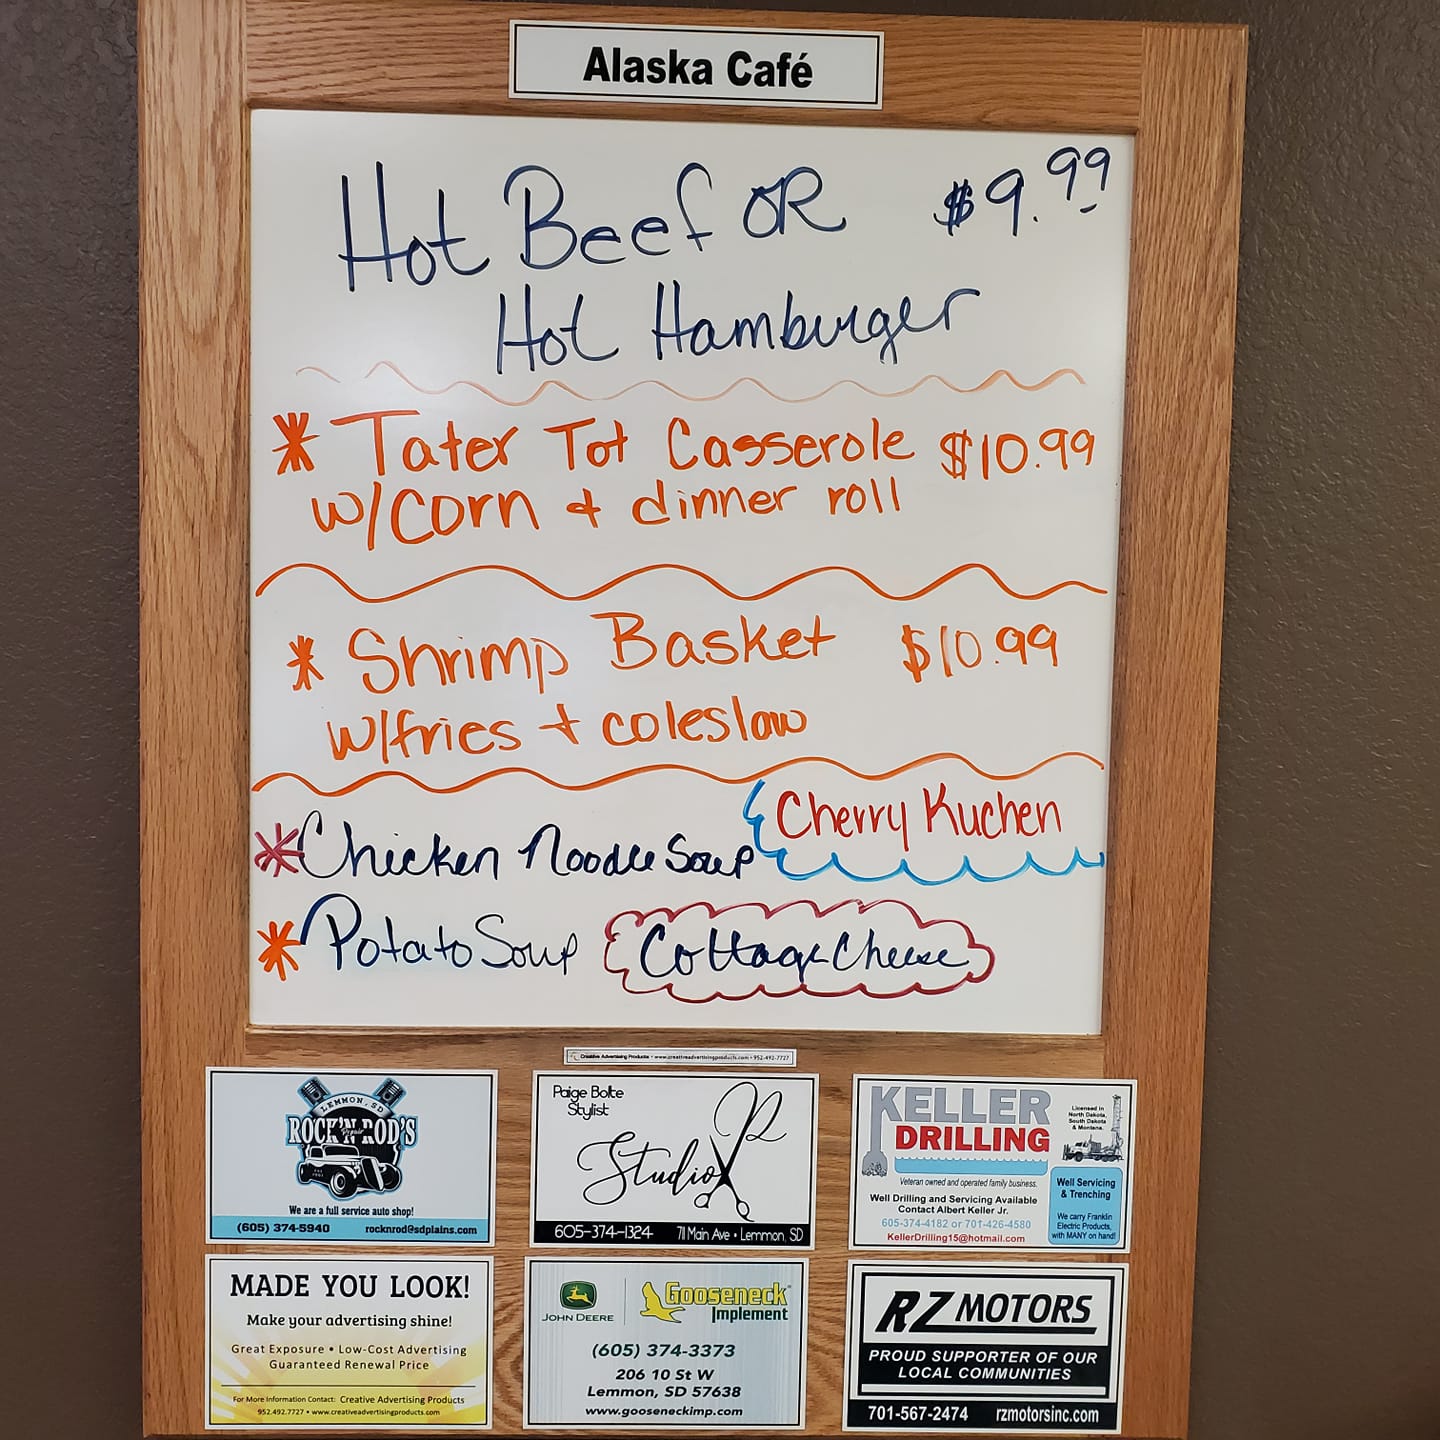 Alaska Café
Hot Beef OR $9.99
Hot Hamburger
* Tater Tot Casserole $10.99
w/corn & dinner roll
* Shrimp Basket $10.99
w/fries + coleslaw
Cherry Kuchen
*Chicken Noodle Soup
*Potato Soup Cottage Cheese
Creative Advertising Products • www.creativeadvertisingproducts.com • 952-492-7727
LEMMON, SD
ROCK'N ROD'S
Repair
We are a full service auto shop!
(605) 374-5940 rocknrod@sdplains.com
Paige Bolte
Stylist
Studio R
605-374-1324 711 Main Ave • Lemmon, SD
KELLER
DRILLING
Licensed in
North Dakota,
South Dakota
& Montana.
Veteran owned and operated family business.
Well Drilling and Servicing Available
Contact Albert Keller Jr.
605-374-4182 or 701-426-4580
KellerDrilling15@hotmail.com
Well Servicing
& Trenching
We carry Franklin
Electric Products,
with MANY on hand!
MADE YOU LOOK!
Make your advertising shine!
Great Exposure • Low-Cost Advertising
Guaranteed Renewal Price
For More Information Contact: Creative Advertising Products
952.492.7727 • www.creativeadvertisingproducts.com
JOHN DEERE
Gooseneck
Implement
(605) 374-3373
206 10 St W
Lemmon, SD 57638
www.gooseneckimp.com
RZ MOTORS
PROUD SUPPORTER OF OUR
LOCAL COMMUNITIES
701-567-2474 rzmotorsinc.com